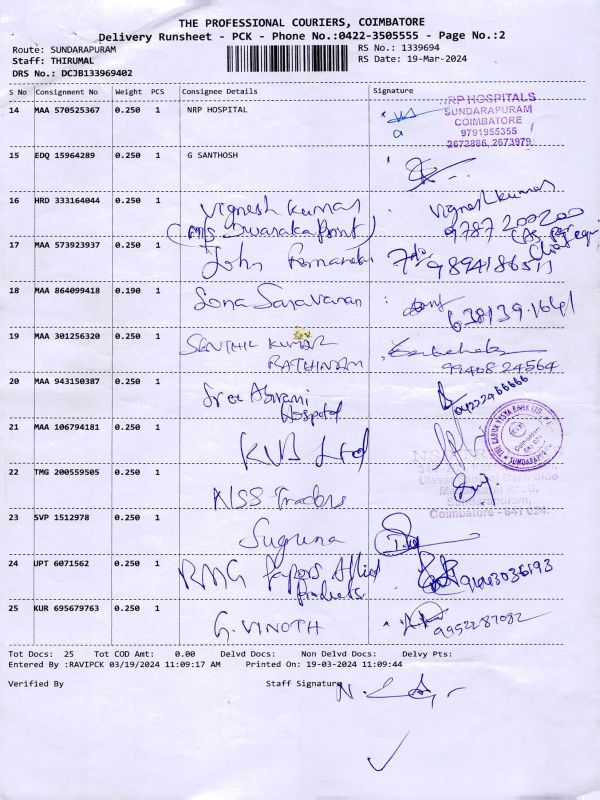 THE PROFESSIONAL COURIERS, COIMBATORE
Delivery Runsheet - PCK - Phone No.:0422-3505555 - Page No.:2
Route: SUNDARAPURAM RS No.: 1339694
Staff: THIRUMAL RS Date: 19-Mar-2024
DRS No.: DCJB133969402
S No Consignment No Weight PCS Consignee Details Signature
14 MAA 570525367 0.250 1 NRP HOSPITAL
NRP HOSPITALS
SUNDARAPURAM
COIMBATORE
9791955355
2672886, 2673979
15 EDQ 15964289 0.250 1 G SANTHOSH
16 HRD 333164044 0.250 1 Vignesh Kumar Vignesh Kumar
(M/s Dwaraka Point) 9787200200
17 MAA 573923937 0.250 1 John Fernandas
18 MAA 864099418 0.190 1 Sona Saravanan
638139.1641
19 MAA 301256320 0.250 1 SENTHIL KUMAR
RATHINAM 99408 24564
20 MAA 943150387 0.250 1 Sree Abirami
Hospital 04222966666
21 MAA 106794181 0.250 1 KVB Ltd
THE KARUR VYSYA BANK LTD.
Coimbatore
SUNDARAPURAM
22 TMG 200559505 0.250 1 NSS Traders
Sundarapuram,
Coimbatore - 641 024.
23 SVP 1512978 0.250 1 Suguna
24 UPT 6071562 0.250 1 RMG Papers Allied
Products
25 KUR 695679763 0.250 1 G. VINOTH 9952287082
Tot Docs: 25 Tot COD Amt: 0.00 Delvd Docs: Non Delvd Docs: Delvy Pts:
Entered By :RAVIPCK 03/19/2024 11:09:17 AM Printed On: 19-03-2024 11:09:44
Verified By Staff Signature